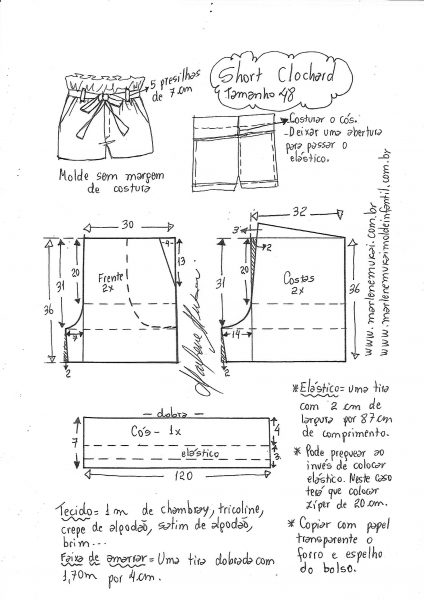 5 presilhas
de 7cm
Short Clochard
Tamanho 48
-Costurar o cós.
-Deixar uma abertura
para passar o
elástico.
Molde sem margem
de costura
www.marlenemukai.com.br
www.marlenemukaimoldeinfantil.com.br
30
4
31
20
13
36
Frente
2x
7
2
Marlene Mukai
32
3
2
31
20
36
Costas
2x
14
2
dobra
7
Cós - 1x
4
elástico
3
120
* Elástico = uma tira
com 2 cm de
largura por 87cm
de comprimento.
* Pode preguear ao
invés de colocar
elástico. Neste caso
terá que colocar
zíper de 20 cm.
* Copiar com papel
transparente o
forro e espelho
do bolso.
Tecido = 1 m de chambray, tricoline,
crepe de algodão, satim de algodão,
brim...
Faixa de amarrar = Uma tira dobrada com
1,70m por 4cm.